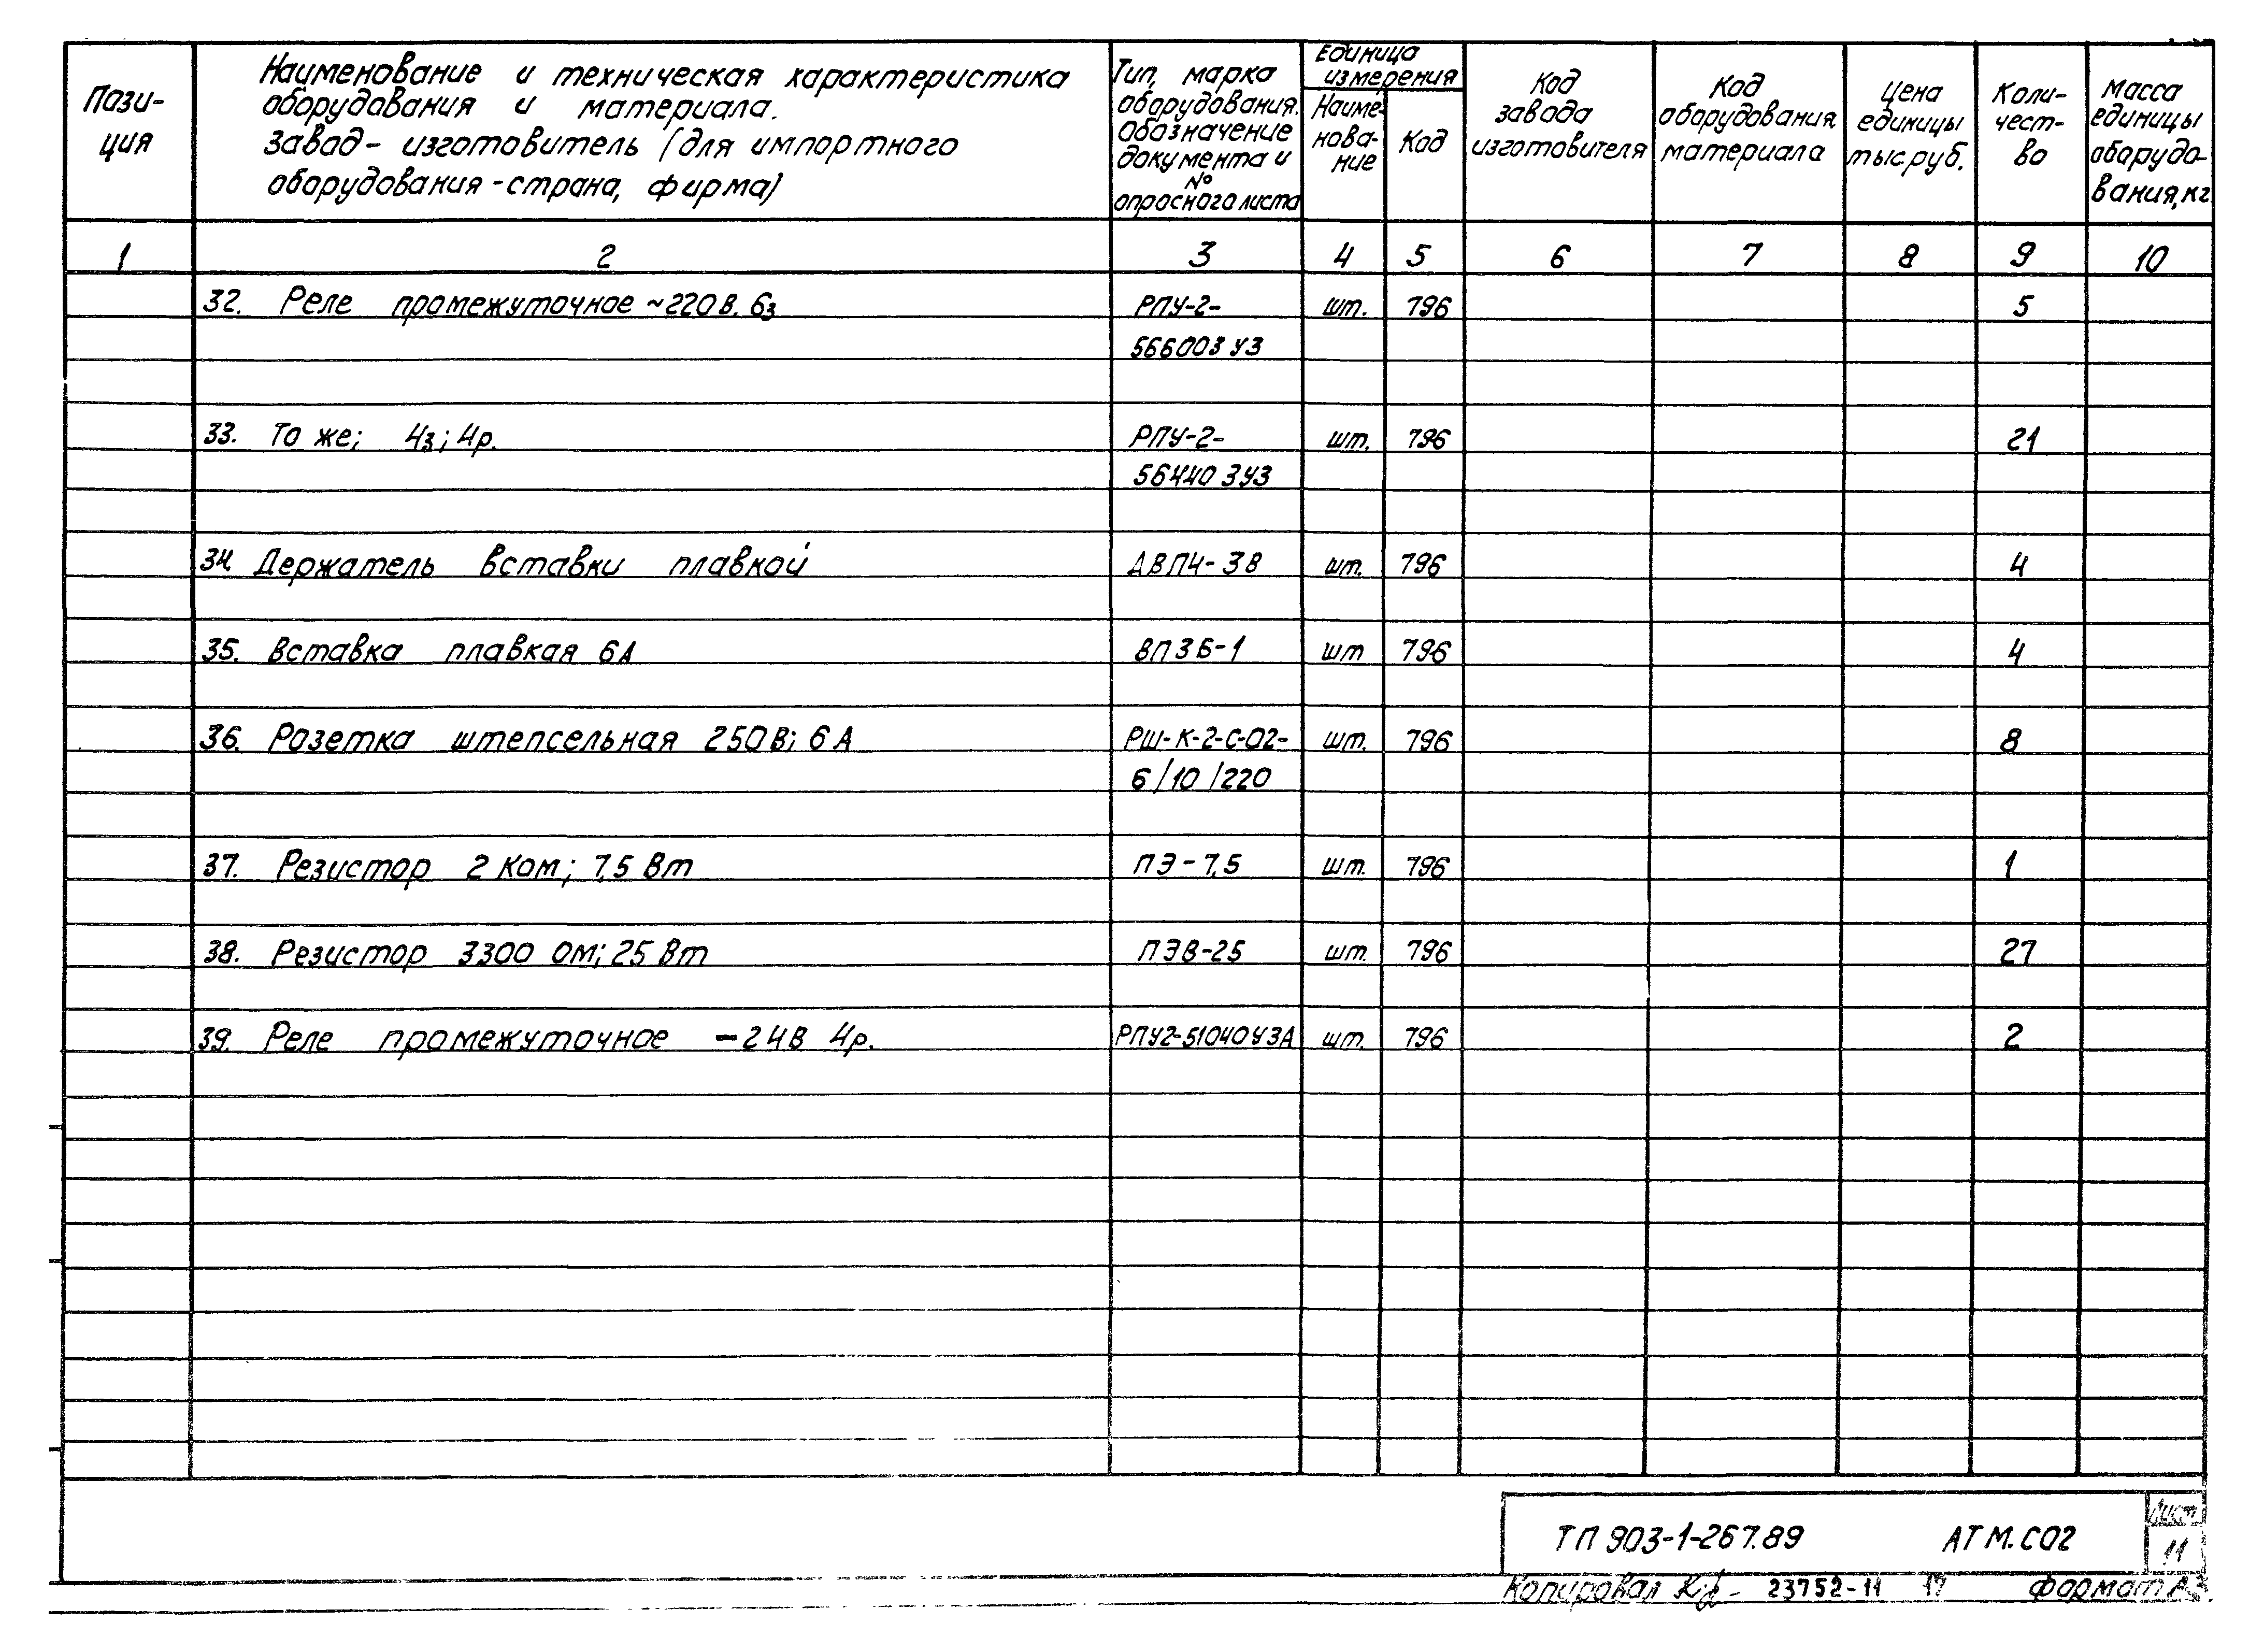 Пози-
ция
Наименование и техническая характеристика
оборудования и материала.
Завод- изготовитель (для импортного
оборудования - страна, фирма)
Тип, марка
оборудования.
Обозначение
документа и
№
опросного листа
Единица
измерения
Наиме-
нова-
ние
Код
Код
завода
изготовителя
Код
оборудования,
материала
Цена
единицы
тыс.руб.
Коли-
чест-
во
Масса
единицы
оборудо-
вания, кг
1 2 3 4 5 6 7 8 9 10
32. Реле промежуточное ~220 В. 6з РПУ-2- шт. 796 5
566003 У3
33. То же; 4з; 4р. РПУ-2- шт. 796 21
56440 3У3
34 Держатель вставки плавкой ДВП4-3В шт. 796 4
35. Вставка плавкая 6А ВП3Б-1 шт 796 4
36. Розетка штепсельная 250В; 6 А РШ-К-2-С-02- шт. 796 8
6/10/220
37. Резистор 2 Ком; 7,5 Вт ПЭ-7,5 шт. 796 1
38. Резистор 3300 Ом; 25 Вт ПЭВ-25 шт. 796 27
39. Реле промежуточное -24В 4р. РПУ2-51040У3А шт. 796 2
ТП 903-1-267.89 АТМ.С02
Лист
11
Копировал 23752-11 17 Формат А3